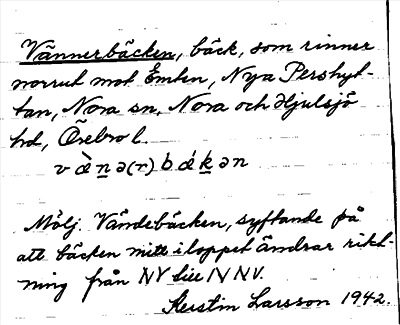 Vännerbäcken, bäck, som rinner
norrut mot Emten, Nya Pershyt-
tan, Nora sn, Nora och Hjulsjö
hd, Örebro l.
v ǽn̲ə(r) b ǽk̲ən
Möjl. Vändebäcken, syftande på
att bäcken mitt i loppet ändrar rikt-
ning från NV till NNV.
Kerstin Larsson 1942.